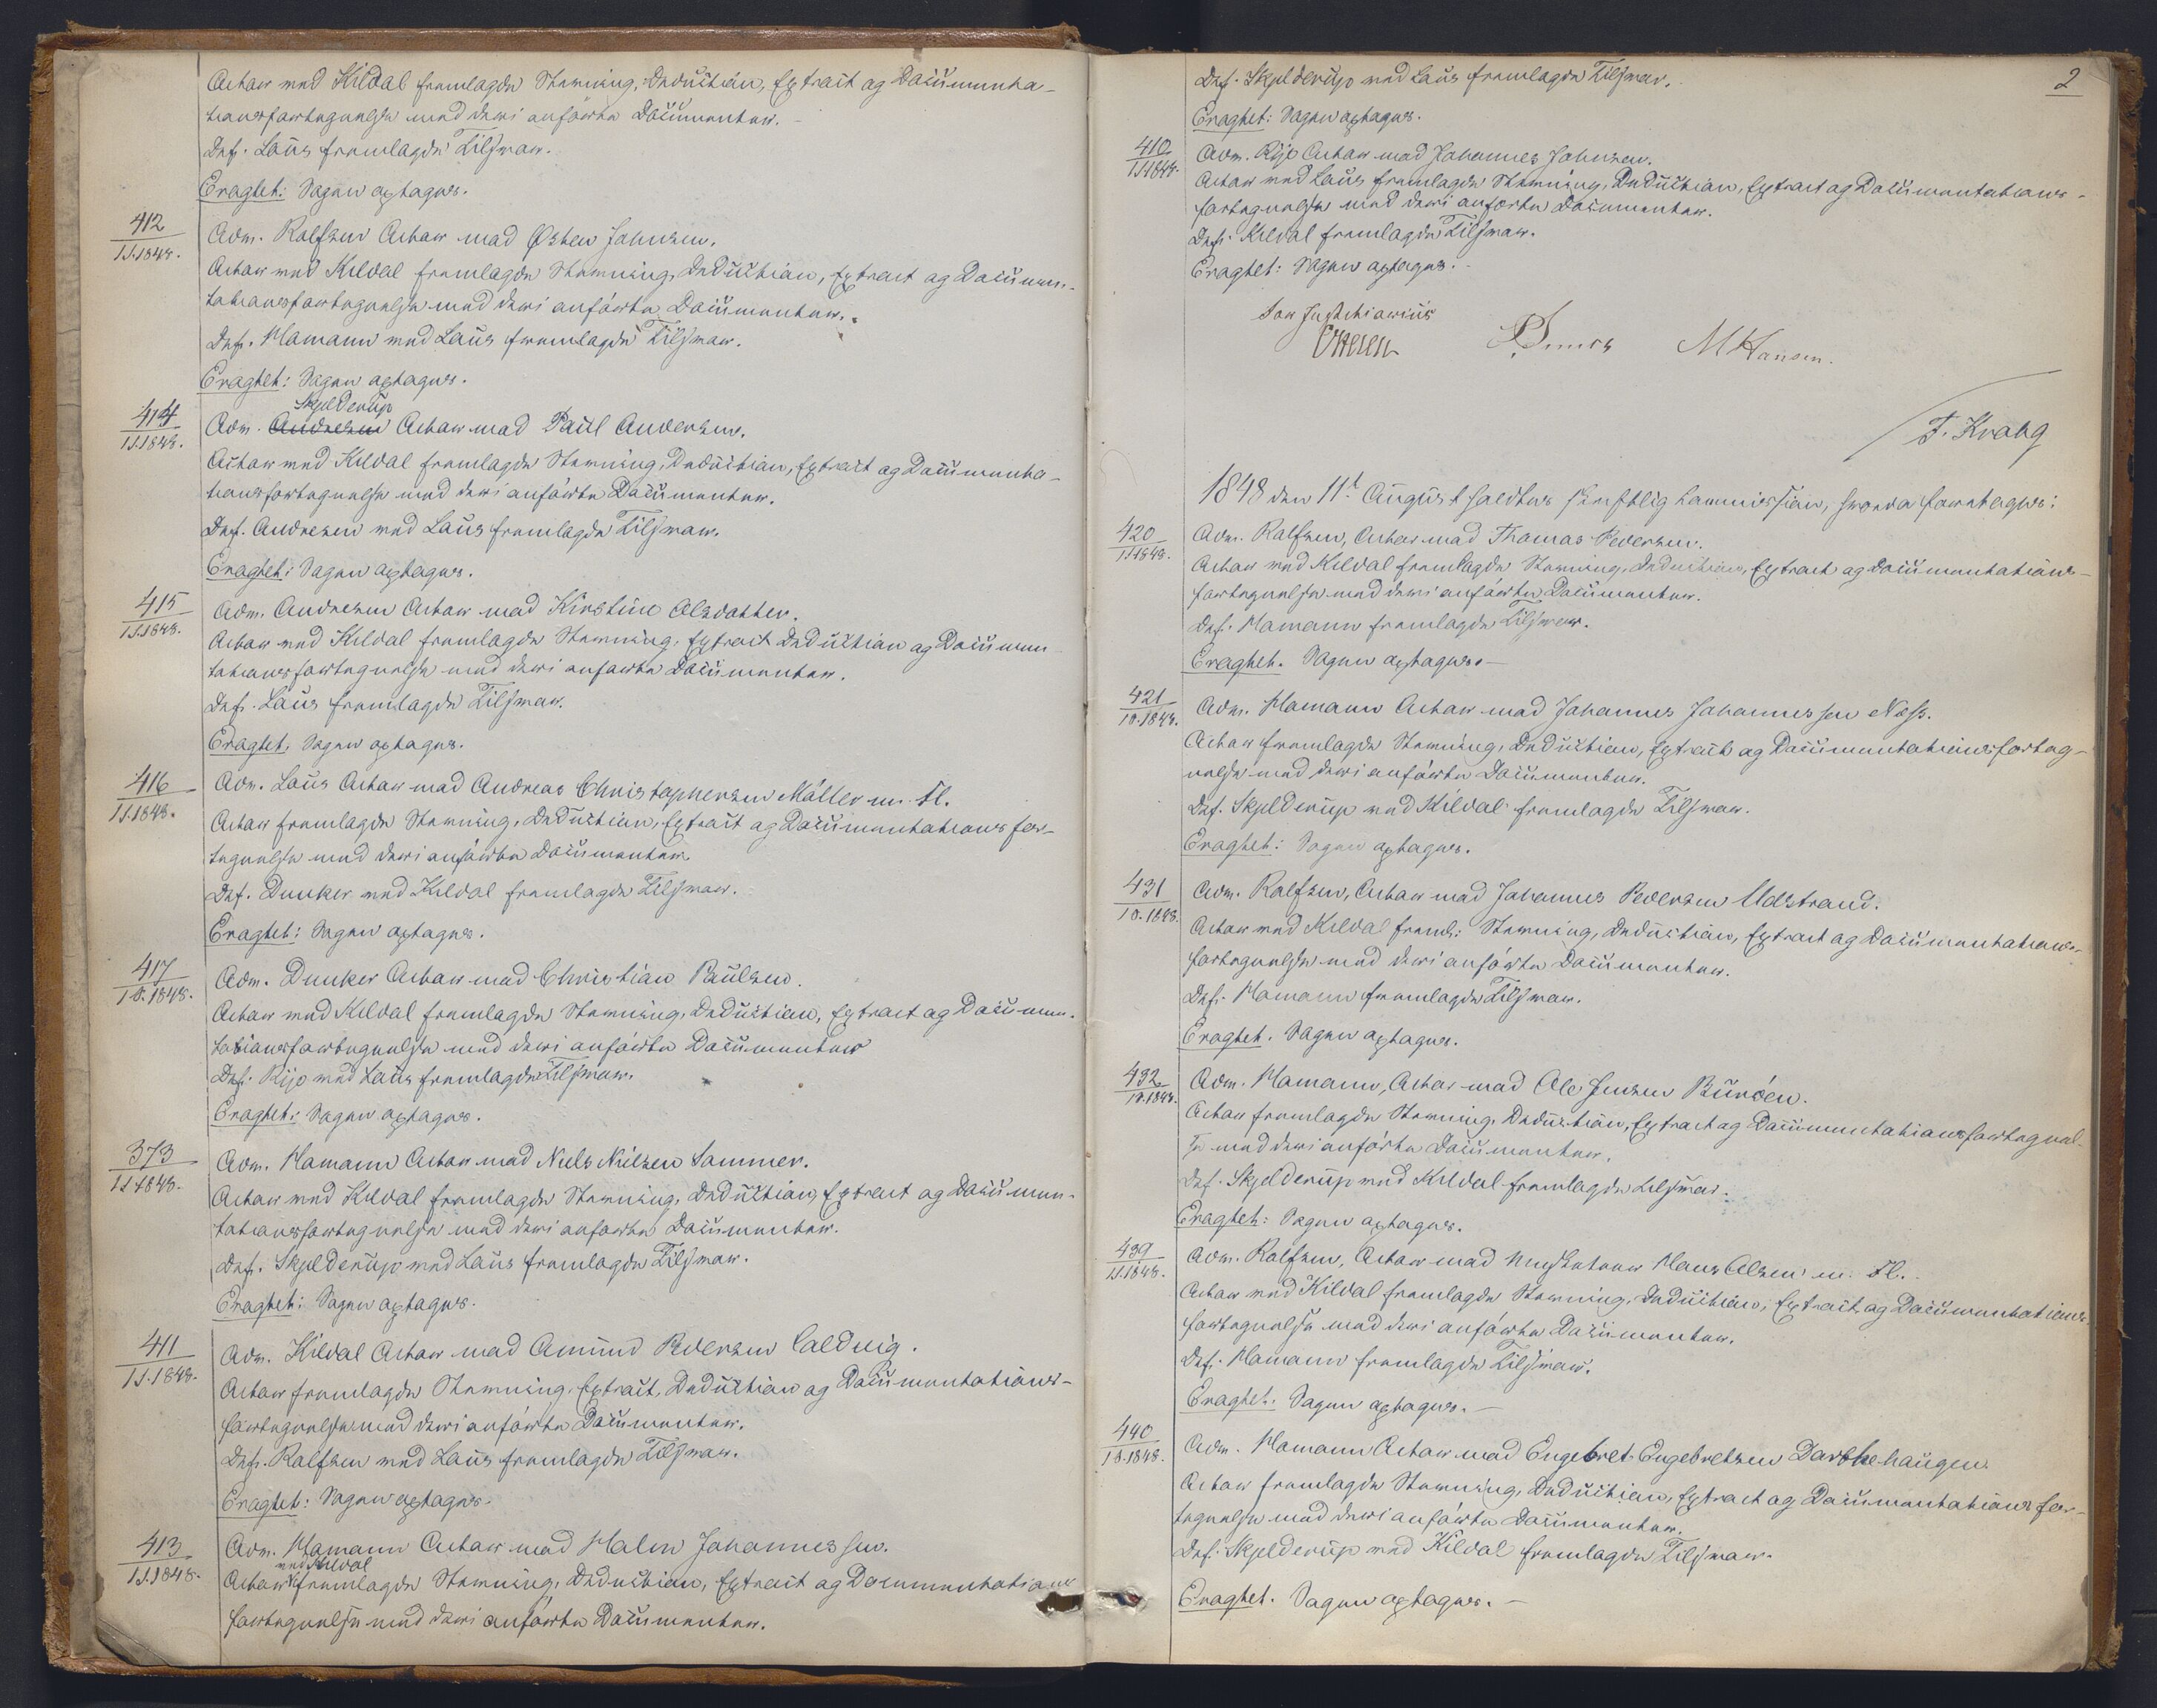 Actor ved Kildal fremlagde Stevning, Deduction, Extract og Documenta-
tionsfortegnelse med deri anførte Documenter. -
Def. Laus fremlagde Tilsvar.
Eragtet: Sagen optages.
412
1 S. 1848.
Adv. Rolfsen Actor mod Østen Johnsen.
Actor ved Kildal fremlagde Stevning, Deduction, Extract og Documen-
tationsfortegnelse med deri anførte Documenter.
Def. Hamann ved Laus fremlagde Tilsvar.
Eragtet: Sagen optages.
414
1 S. 1848.
Skjelderup
Adv. Andresen Actor mod Paul Andersen.
Actor ved Kildal fremlagde Stevning, Deduction, Extract og Documenta-
tionsfortegnelse med deri anførte Documenter.
Def. Andresen ved Laus fremlagde Tilsvar.
Eragtet: Sagen optages.
415
1 S. 1848.
Adv. Andresen Actor mod Kirstine Olsdatter.
Actor ved Kildal fremlagde Stevning, Extract Deduction og Documen-
tationsfortegnelse med deri anførte Documenter.
Def. Laus fremlagde Tilsvar.
Eragtet, Sagen optages.
416
1 S. 1848.
Adv. Laus Actor mod Andreas Christophersen Møller m. Fl.
Actor fremlagde Stevning, Deduction, Extract og Documentations for-
tegnelse med deri anførte Documenter.
Def. Dunker ved Kildal fremlagde Tilsvar.
Eragtet: Sagen optages.
417
1 S. 1848.
Adv. Dunker Actor mod Christian Paulsen.
Actor ved Kildal fremlagde Stevning, Deduction, Extract og Documen-
tationsfortegnelse med deri anførte Documenter
Def. Rije ved Laus fremlagde Tilsvar.
Eragtet: Sagen optages.
373
1 S. 1848.
Adv. Hamann Actor mod Niels Nielsen Sommer.
Actor ved Kildal fremlagde Stevning, Deduction, Extract og Documen-
tationsfortegnelse med deri anførte Documenter.
Def. Skjelderup ved Laus fremlagde Tilsvar.
Eragtet: Sagen optages.
411
1 S. 1848.
Adv. Kildal Actor mod Amund Pedersen
Actor fremlagde Stevning, Extract, Deduction og Documentations-
fortegnelse med deri anførte Documenter.
Def. Rolfsen ved Laus fremlagde Tilsvar.
Eragtet: Sagen optages.
413
1 S. 1848.
Adv. Hamann Actor mod Halvor Johannessen.
ved Kildal
Actor fremlagde Stevning, Deduction, Extract og Documentations
fortegnelse med deri anførte Documenter.
2
Def. Skjelderup ved Laus fremlagde Tilsvar.
Eragtet: Sagen optages.
410
1 S. 1848.
Adv. Rije Actor mod Johannes Johnsen.
Actor ved Laus fremlagde Stevning, Deduction, Extract og Documentations-
fortegnelse med deri anførte Documenter.
Def. Kildal fremlagde Tilsvar.
Eragtet: Sagen optages. -
For Justitiarius
M Hansen.
F. Kraag
1848 den 11te August holdtes skriftlig Commission, hvorda foretages:
420
1 S. 1848.
Adv. Rolfsen, Actor mod Thomas Pedersen.
Actor ved Kildal fremlagde Stevning, Deduction, Extract og Documentations-
fortegnelse med deri anførte Documenter.
Def. Hamann fremlagde Tilsvar.
Eragtet. Sagen optages. -
421
1 S. 1848.
Adv. Hamann Actor mod Johannes Johannessen Næss.
Actor fremlagde Stevning, Deduction, Extract og Documentationsforteg-
nelse med deri anførte Documenter.
Def. Skjelderup ved Kildal fremlagde Tilsvar.
Eragtet: Sagen optages.
431
1 S. 1848.
Adv. Rolfsen, Actor mod Johannes Pedersen Udstrand.
Actor ved Kildal freml: Stevning, Deduction, Extract og Documentations-
fortegnelse med deri anførte Documenter.
Def. Hamann fremlagde Tilsvar.
Eragtet. Sagen optages.
432
1 S. 1848.
Adv. Hamann, Actor mod Ole Jensen Burøen.
Actor fremlagde Stevning, Deduction, Extract og Documentationsfortegnel-
se med deri anførte Documenter.
Def. Skjelderup ved Kildal fremlagde Tilsvar.
Eragtet: Sagen optages.
439
1 S. 1848.
Adv. Rolfsen, Actor mod Hans Olsen m. Fl.
Actor ved Kildal fremlagde Stevning, Deduction, Extract og Documentations-
fortegnelse med deri anførte Documenter.
Def. Hamann fremlagde Tilsvar.
Eragtet. Sagen optages. -
440
1 S. 1848.
Adv. Hamann Actor mod Engebret Engebretsen
Actor fremlagde Stevning, Deduction, Extract og Documentations for-
tegnelse med deri anførte Documenter.
Def. Skjelderup ved Kildal fremlagde Tilsvar.
Eragtet. Sagen optages. -